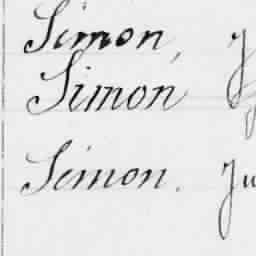 Simon,
Simon
Simon. Ju